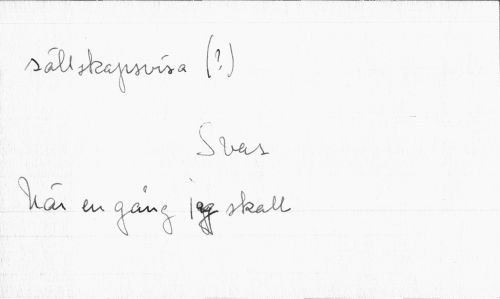 sällskapsvisa (?)
Svas
När en gång jag skall